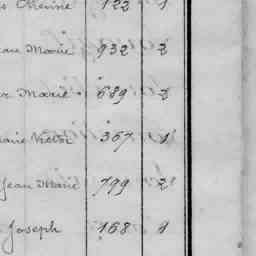 Etienne 122 1
Marie 932 2
Marie 689 2
Marie Victor 367 1
Jean Marie 799 2
Joseph 168 1